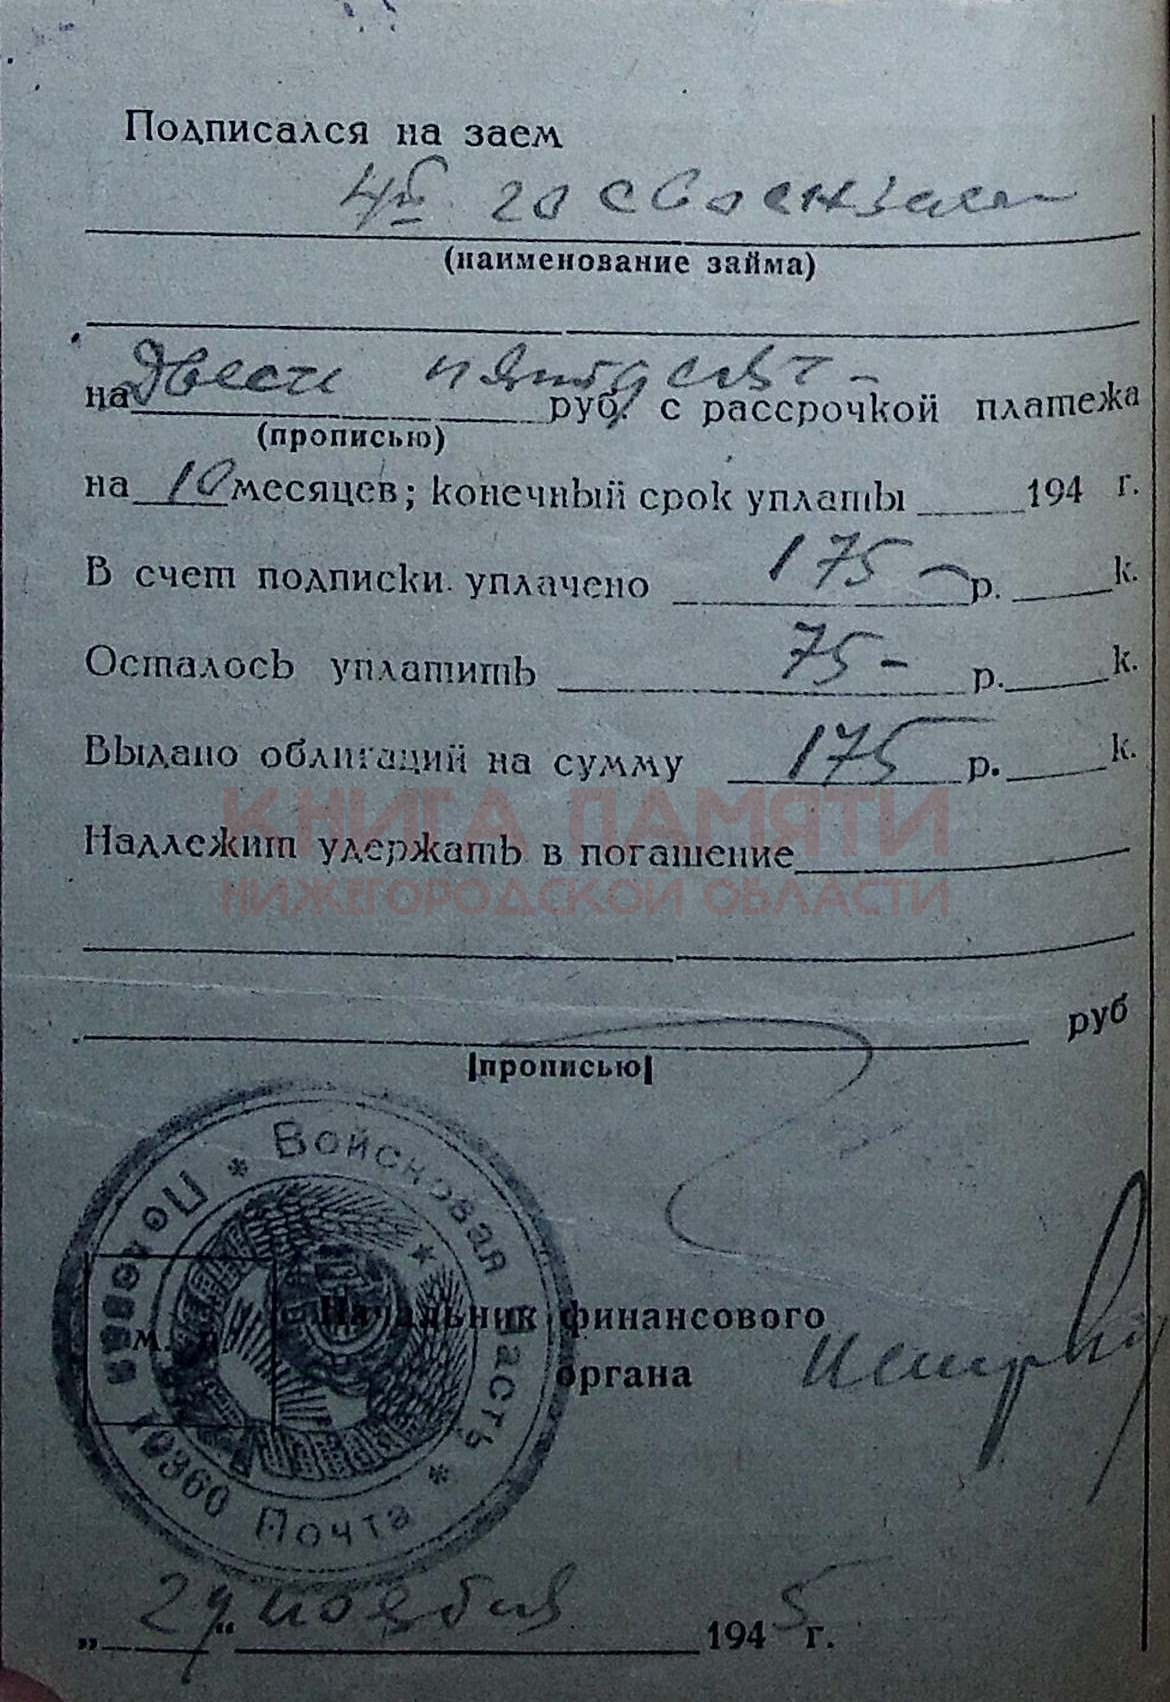 Подписался на заем
4й госвоензаем
(наименование займа)
на Двести пятьдесят руб. с рассрочкой платежа
(прописью)
на 10 месяцев; конечный срок уплаты 194 г.
В счет подписки уплачено 175 – р. к.
Осталось уплатить 75 – р. к.
Выдано облигаций на сумму 175 р. к.
КНИГА ПАМЯТИ
Надлежит удержать в погашение
НИЖЕГОРОДСКОЙ ОБЛАСТИ
руб
(прописью)
* Войсковая часть * Полевая Почта 10360
Начальник финансового
м. п.
органа
„24“ ноября 1945 г.